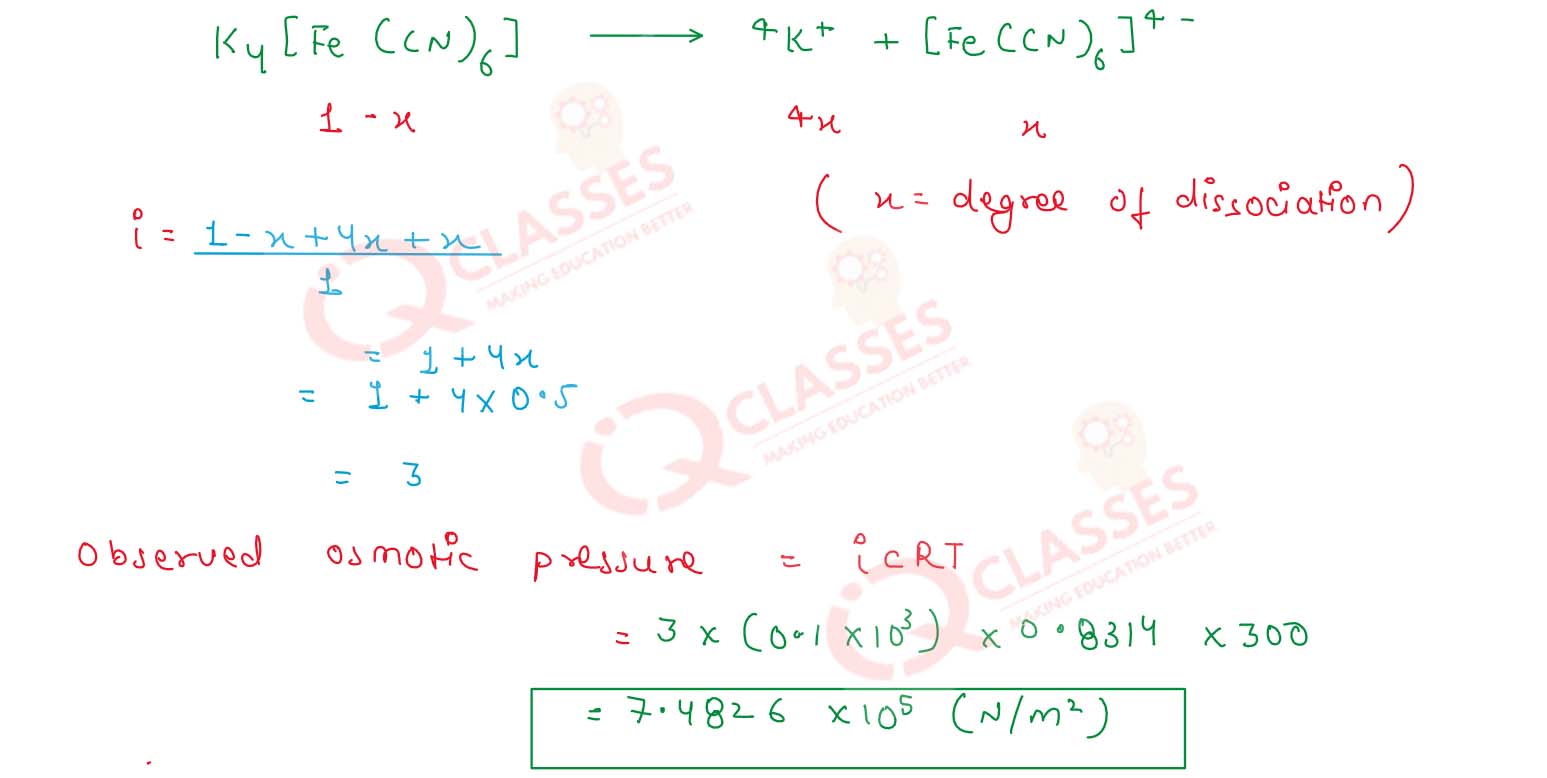 K₄[Fe(CN)₆] ⟶ 4K⁺ + [Fe(CN)₆]⁴⁻
1 - x 4x x
( x = degree of dissociation)
i = 1 - x + 4x + x / 1
= 1 + 4x
= 1 + 4 × 0.5
= 3
Observed osmotic pressure = iCRT
= 3 × (0.1 × 10³) × 0.8314 × 300
= 7.4826 × 10⁵ (N/m²)
iQ CLASSES
MAKING EDUCATION BETTER
iQ CLASSES
MAKING EDUCATION BETTER
iQ CLASSES
MAKING EDUCATION BETTER